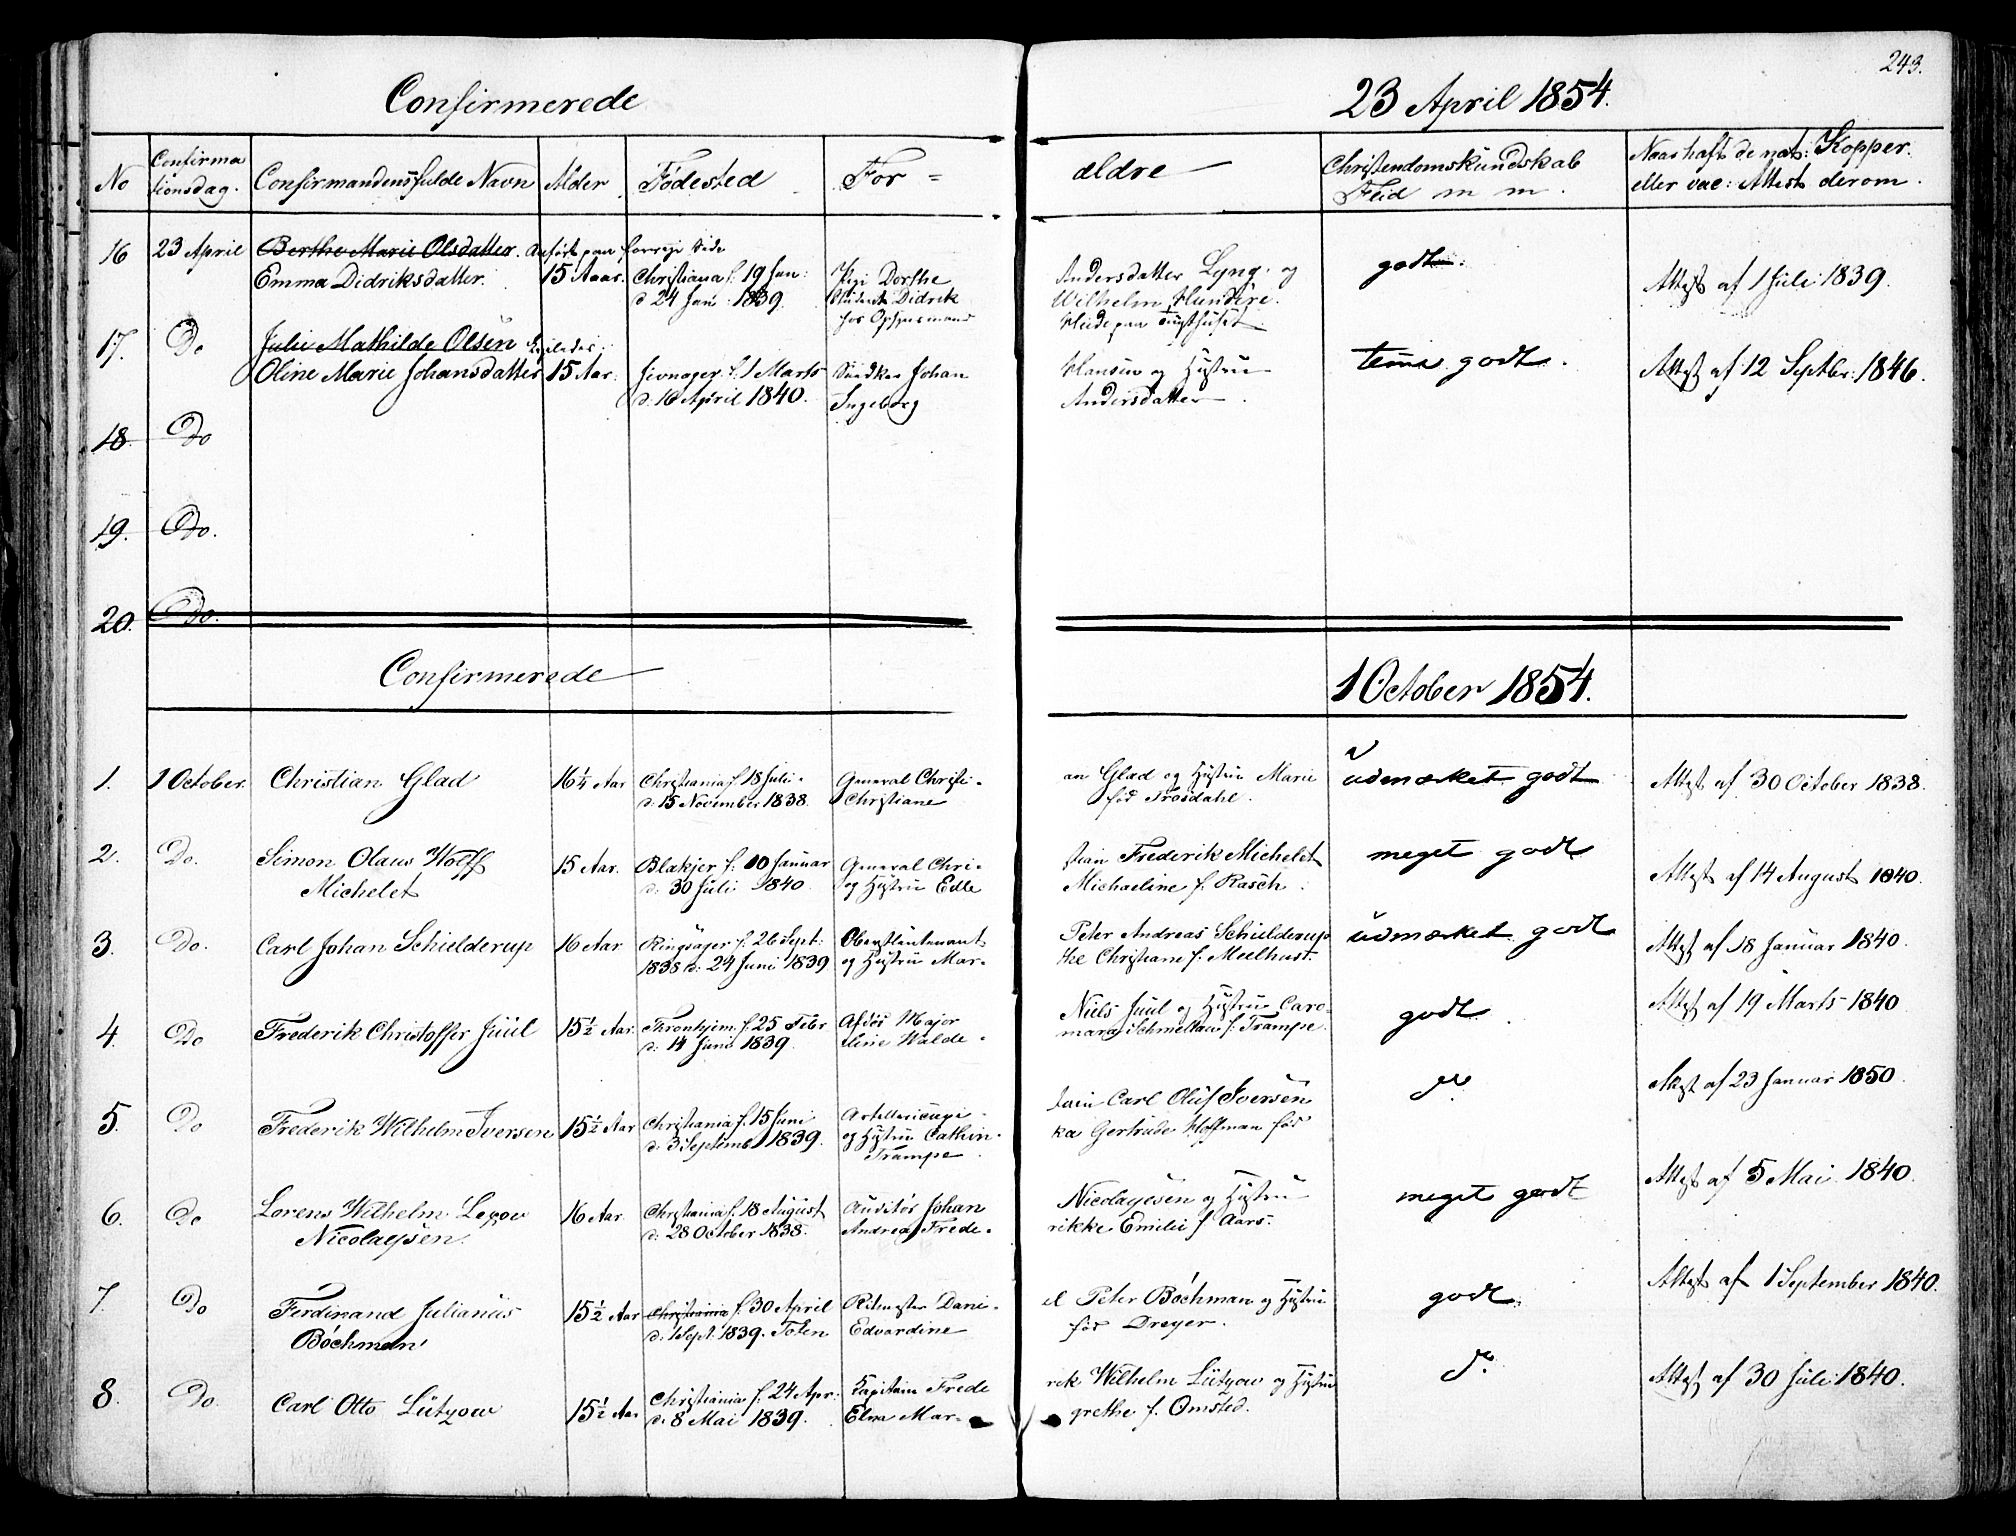 243.
Confirmerede 23 April 1854.
No Confirma tionsdag. Confirmandens fulde Navn Alder Fødested For= ældre Christendomskundskab Flid m m. Naar haft de nat: Kopper. eller vac: Attest derom.
16 23 April Berthe Marie Olsdatter. Anført paa forrige Side
Emma Didriksdatter. 15 Aar. Christiania f. 19 Jan: Pige Dorthe Andersdatter Lyng. og godt. Attest af 1 Juli 1839.
d. 24 1839. Student Didrik Wilhelm
hos Tugthuset
17. Do Julie Mathilde Olsen
Oline Marie Johansdatter 15 Aar. f. 1 Marts Johan Hansen og Hustru temi godt. Attest af 12 Septbr: 1846.
d. 16 April 1840. Ingeborg Andersdatter.
18. Do
19. Do.
20. Do.
Confirmerede 1 October 1854.
1. 1 October. Christian Glad 16¼ Aar Christiania f. 18 Juli General Christi- an Glad og Hustru Marie udmærket godt Attest af 30 October 1838.
d. 15 November 1838. Christiane fød Trosdahl.
2. Do. Simon Olaus Wolff 15 Aar. Blakjer f. 10 Januar General Chri- stian Frederik Michelet meget godt Attest af 14 August 1840.
Michelet d. 30 Juli 1840. og Hustru Edle Michaeline f. Rasch.
3. Do. Carl Johan Schielderup 16 Aar Ringsager f. 26 Sept: Oberstlieutenant Peter Andreas Schielderup udmærket godt Attest af 18 Januar 1840.
1838 d. 24 Juni 1839 og Hustru Mar- the Christiane f. Meelhust.
4. Do Frederik Christoffer Juul 15½ Aar. Thronhjem f. 25 Febr Afdøe Major Niels Juul og Hustru Caro- godt. Attest af 19 Marts 1840
d. 14 Juni 1839. line Walde- mara Schmettau f. Trampe.
5. Do Frederik Wilhelm Iversen 15½ Aar Christiania f. 15 Juni Carl Oluf Iversen do. Attest af 23 Januar 1850.
d. 3 Septemb 1839. og Hustru Cathin- ka Gertrude Hoffman fød
Trampe
6. Do Lorens Wilhelm Lexow 16 Aar. Christiania f. 18 August Auditør Johan Nicolayesen og Hustru meget godt Attest af 5 Mai 1840.
Nicolaysen. d. 28 October 1838. Andrea Frede- rikke Emilie f. Aars.
7. Do Ferdinand Julianus 15½ Aar Christiania f. 30 April Ritmester Dani- el Peter Bøchman og Hustru godt. Attest af 1 September 1840.
Bøchman d. 1 Sept. 1839. Toten Edvardine fød Dreyer.
8. Do. Carl Otto Lützow 15½ Aar Christiania f. 24 Apr: Kapitain Frede rik Wilhelm Lützow og Hustru do. Attest af 30 Juli 1840.
d. 8 Mai 1839. Elna Mar- grethe f. Omsted.